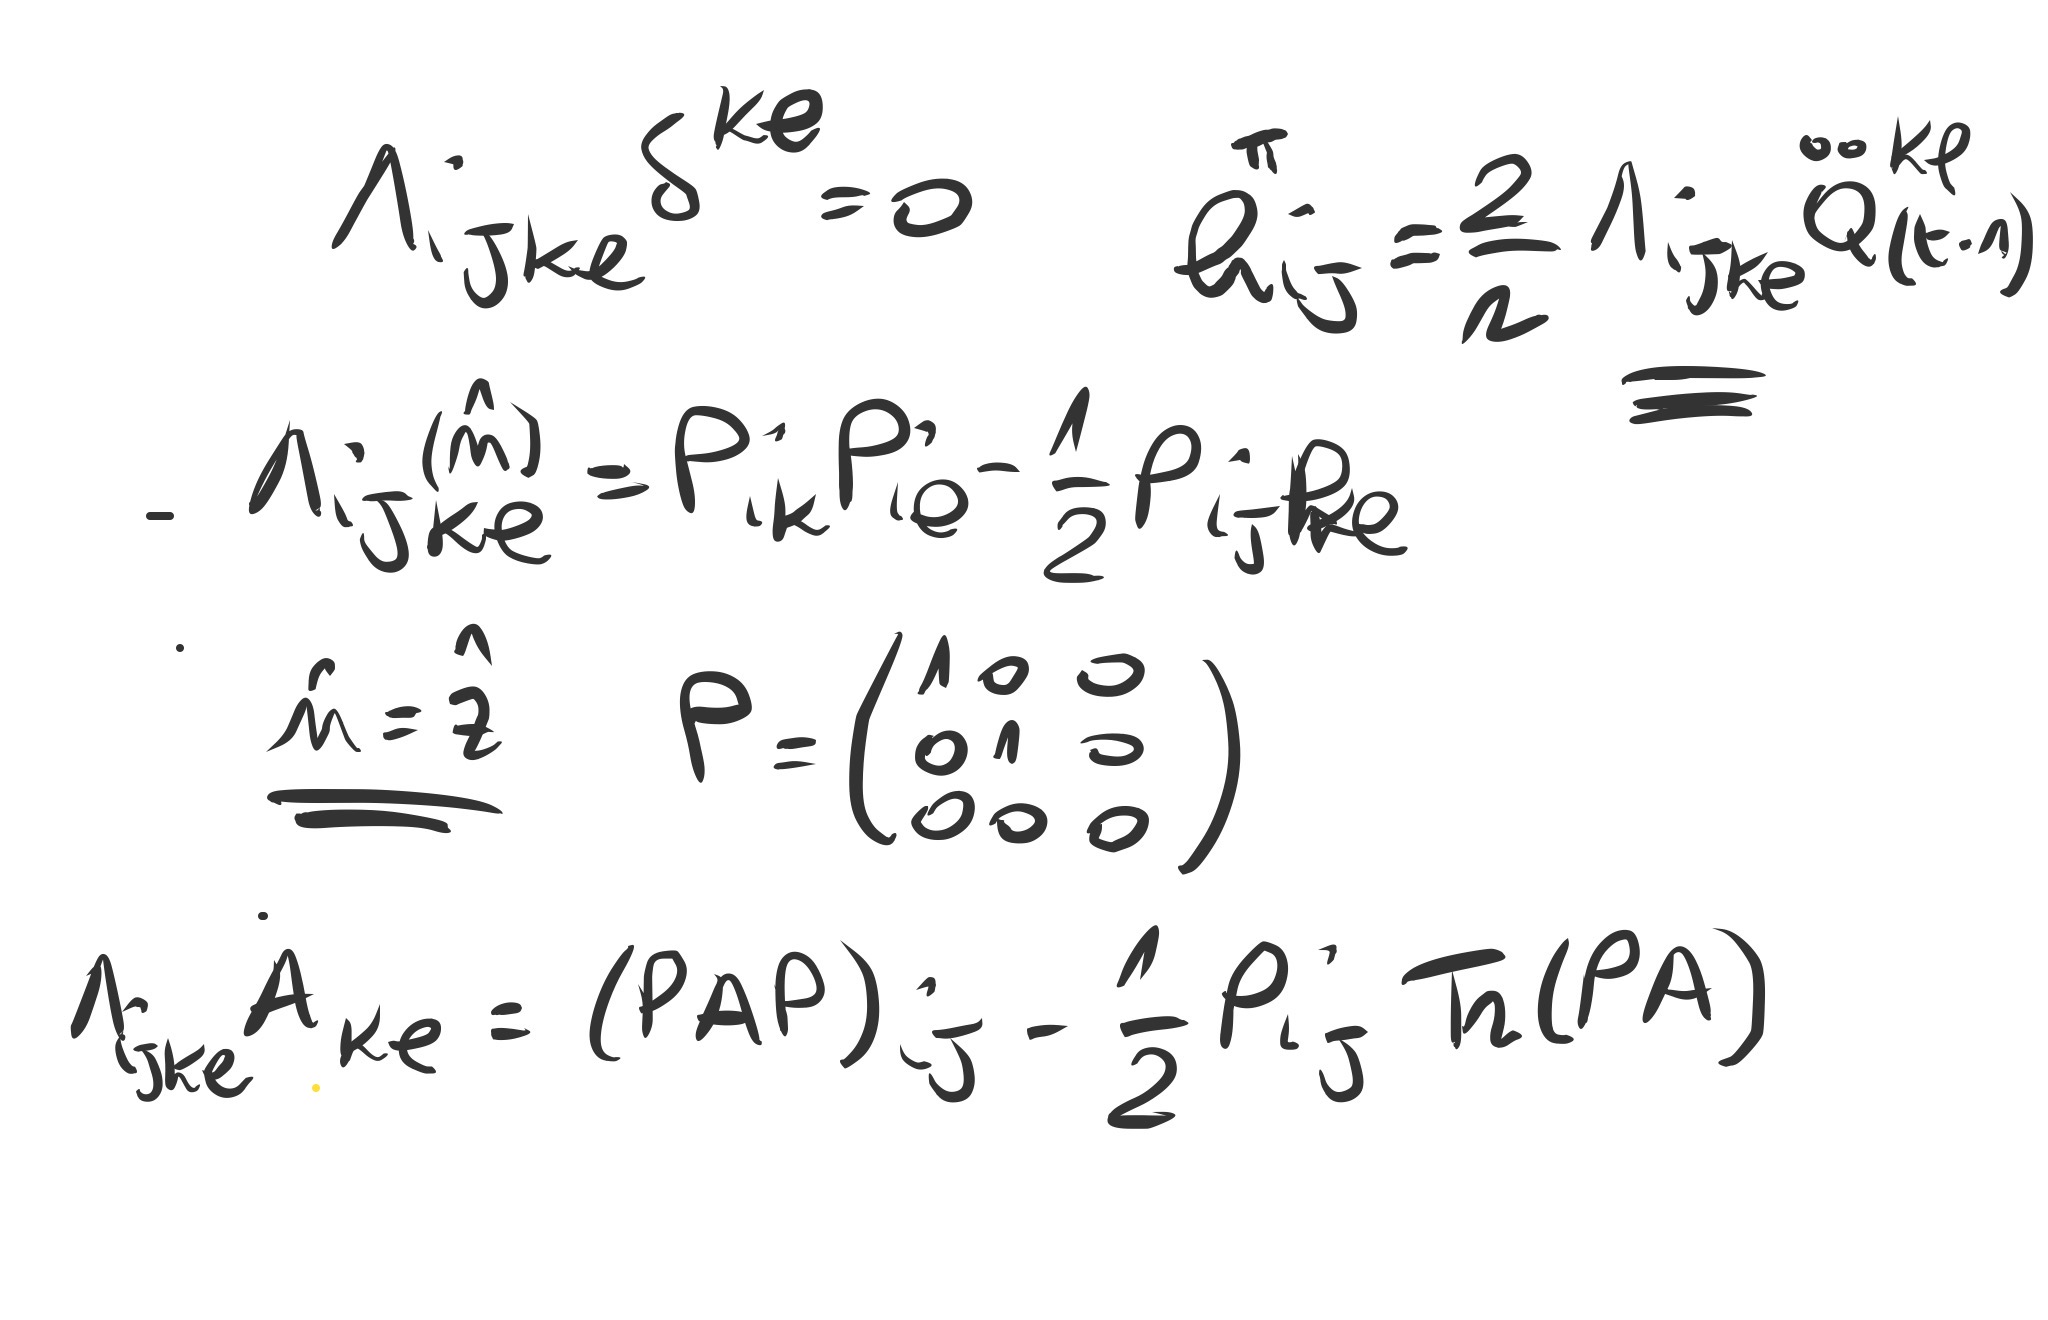 Λ_{ijkl} δ^{kl} = 0    h_{ij}^{TT} = \frac{2}{r} Λ_{ijkl} \ddot{Q}^{kl}(t-r)
- Λ_{ijkl}(\hat{n}) = P_{ik} P_{il} - \frac{1}{2} P_{ij} P_{kl}
\hat{n} = \hat{z}    P = \begin{pmatrix} 1 & 0 & 0 \\ 0 & 1 & 0 \\ 0 & 0 & 0 \end{pmatrix}
Λ_{ijkl} A_{kl} = (PAP)_{ij} - \frac{1}{2} P_{ij} Tr(PA)